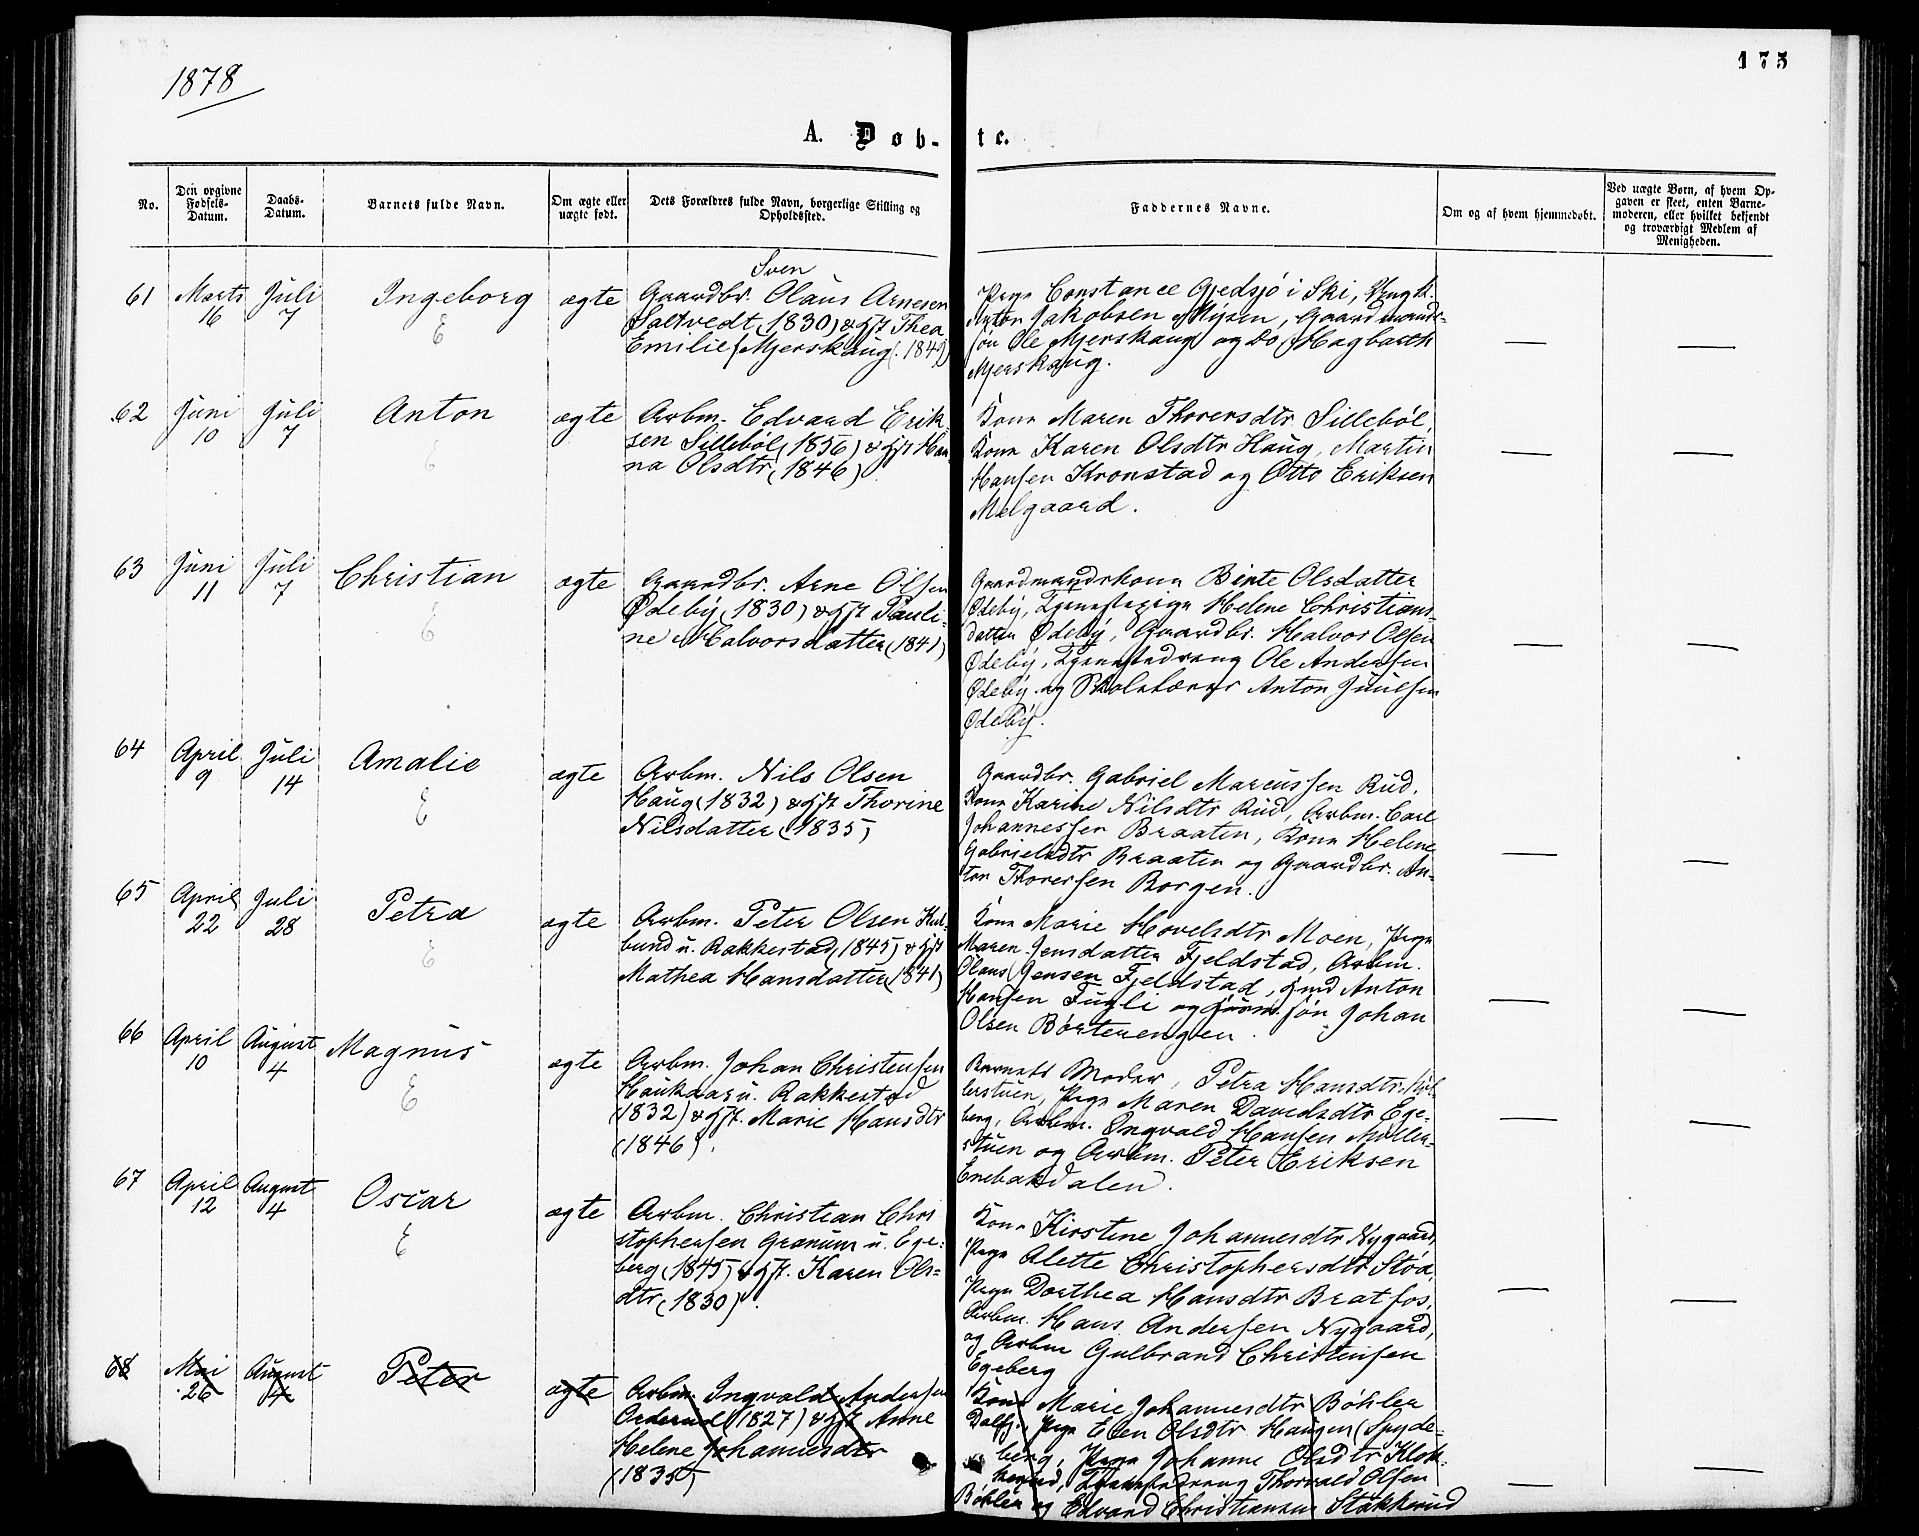 1878
175
A. Døb-
te.
No.
Den opgivne Fødsels-Datum.
Daabs-Datum.
Barnets fulde Navn.
Om ægte eller uægte født.
Dets Forældres fulde Navn, borgerlige Stilling og Opholdssted.
Faddernes Navne.
Om og af hvem hjemmedøbt.
Ved uægte Børn, af hvem Opgaven er skeet, enten Barnemoderen, eller hvilket bekjendt og troværdigt Medlem af Menigheden.
61
Marts 16
Juli 7
Ingeborg
E
ægte
Sven
Gaardbr. Olaus Arnesen
Saltvedt (1830) & Hst Thea
Emilie Mjerskaug (1849)
Pige Constance Gjedsjø i Ski, Ungk.
Anton Jakobsen Mysen, Gaardmands-
søn Ole Mjerskaug og Do Hagbarth
Mjerskaug.
62
Juni 10
Juli 7
Anton
E
ægte
Arbm. Edvard Erik
sen Sillebøl (1856) & Hst Han
na Olsdtr (1846)
Kone Maren Thorersdtr Sillebøl,
Kone Karen Olsdtr Haug, Martin
Hansen Kronstad og Otto Eriksen
Melgaard.
63
Juni 11
Juli 7
Christian
E
ægte
Gaardbr. Arne Olsen
Ødeby (1830) & Hst Pauli-
ne Halvorsdatter (1841)
Gaardmandskone Birte Olsdatter
Ødeby, Tjenestepige Helene Christians-
datter Ødeby, Gaardbr. Halvor Olsen
Ødeby, Tjenestedreng Ole Andersen
Ødeby og Skolelærer Anton Juulsen
Ødeby.
64
April 9
Juli 14
Amalie
E
ægte
Arbm. Nils Olsen
Haug (1832) & Hst Thorine
Nilsdatter (1835)
Gaardbr. Gabriel Marcussen Rud,
Kone Karine Nilsdtr Rud, Arbm. Carl
Johannessen Braaten, Kone Helene
Gabrielsdtr Braaten og Gaardbr. An-
ton Thoresen Borgen.
65
April 22
Juli 28
Petra
E
ægte
Arbm. Peter Olsen
bund u. Rakkestad (1845) & Hst
Mathea Hansdatter (1841)
Kone Marie Hovelsdtr Moen, Pige
Maren Jensdatter Fjeldstad, Arbm.
Olaus Jensen Fjeldstad, Anton
Hansen Fugli og søn Johan
Olsen Børterengen.
66
April 10
August 4
Magnus
E
ægte
Arbm. Johan Christensen
Haukaas u. Rakkestad
(1832) & Hst. Marie Hansdtr
(1846).
Barnets Moder, Petra Hansdtr
lerstuen, Pige Maren Davidsdtr Ege-
berg, Arbm. Ingvald Hansen Møller-
stuen og Arbm. Peter Eriksen
Enebakdalen.
67
April 12
August 4
Oscar
E
ægte
Arbm. Christian Chri
stophersen Grønum u. Ege-
berg (1845) & Hst. Karen Ols-
dtr (1830).
Kone Kirstine Johannesdtr Nygaard,
Pige Alette Christophersdtr Støa,
Pige Dorthea Hansdtr Bratfos,
Arbm. Hans Andersen Nygaard,
og Arbm Gulbrand Christensen
Egeberg
68
Mai 26
August 4
Peter
ægte
Arbm. Ingvald Andersen
Orderud (1827) & Hst Anne
Helene Johannesdtr
(1835)
Kone Marie Johannesdtr Bøhler
Pige Elen Olsdtr Haugen (Spyde-
berg, Pige Johanne Olsdtr Klok-
kerud, Tjenestedreng Thorvald Olsen
Bøhler og Edvard Christiansen Stakkerud